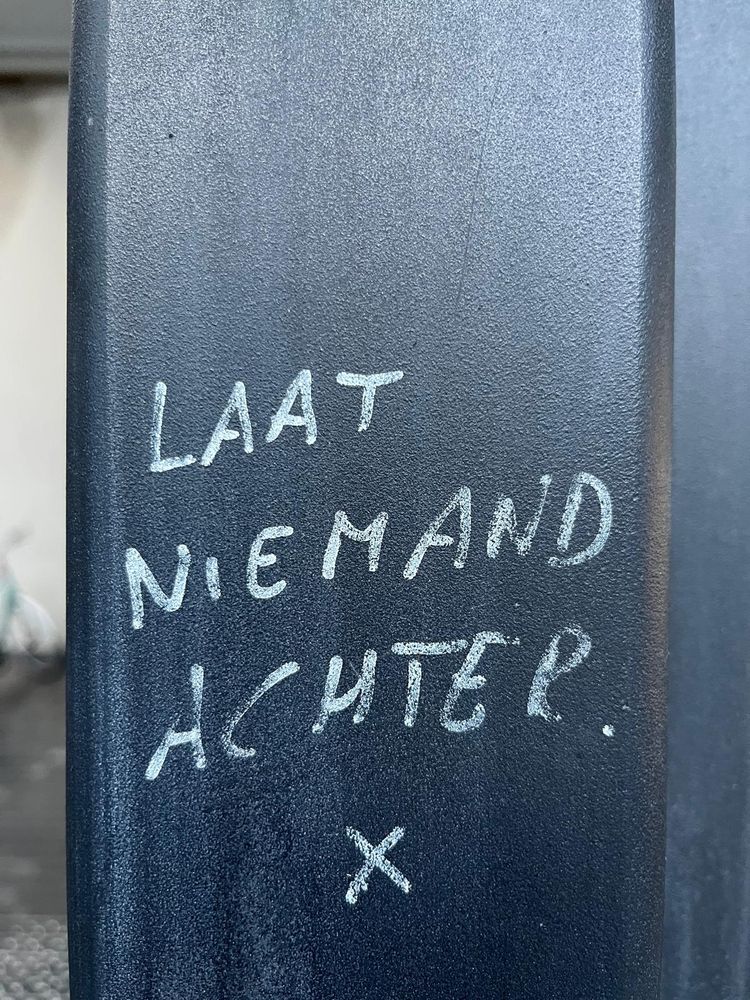 LAAT
NIEMAND
ACHTER.
X